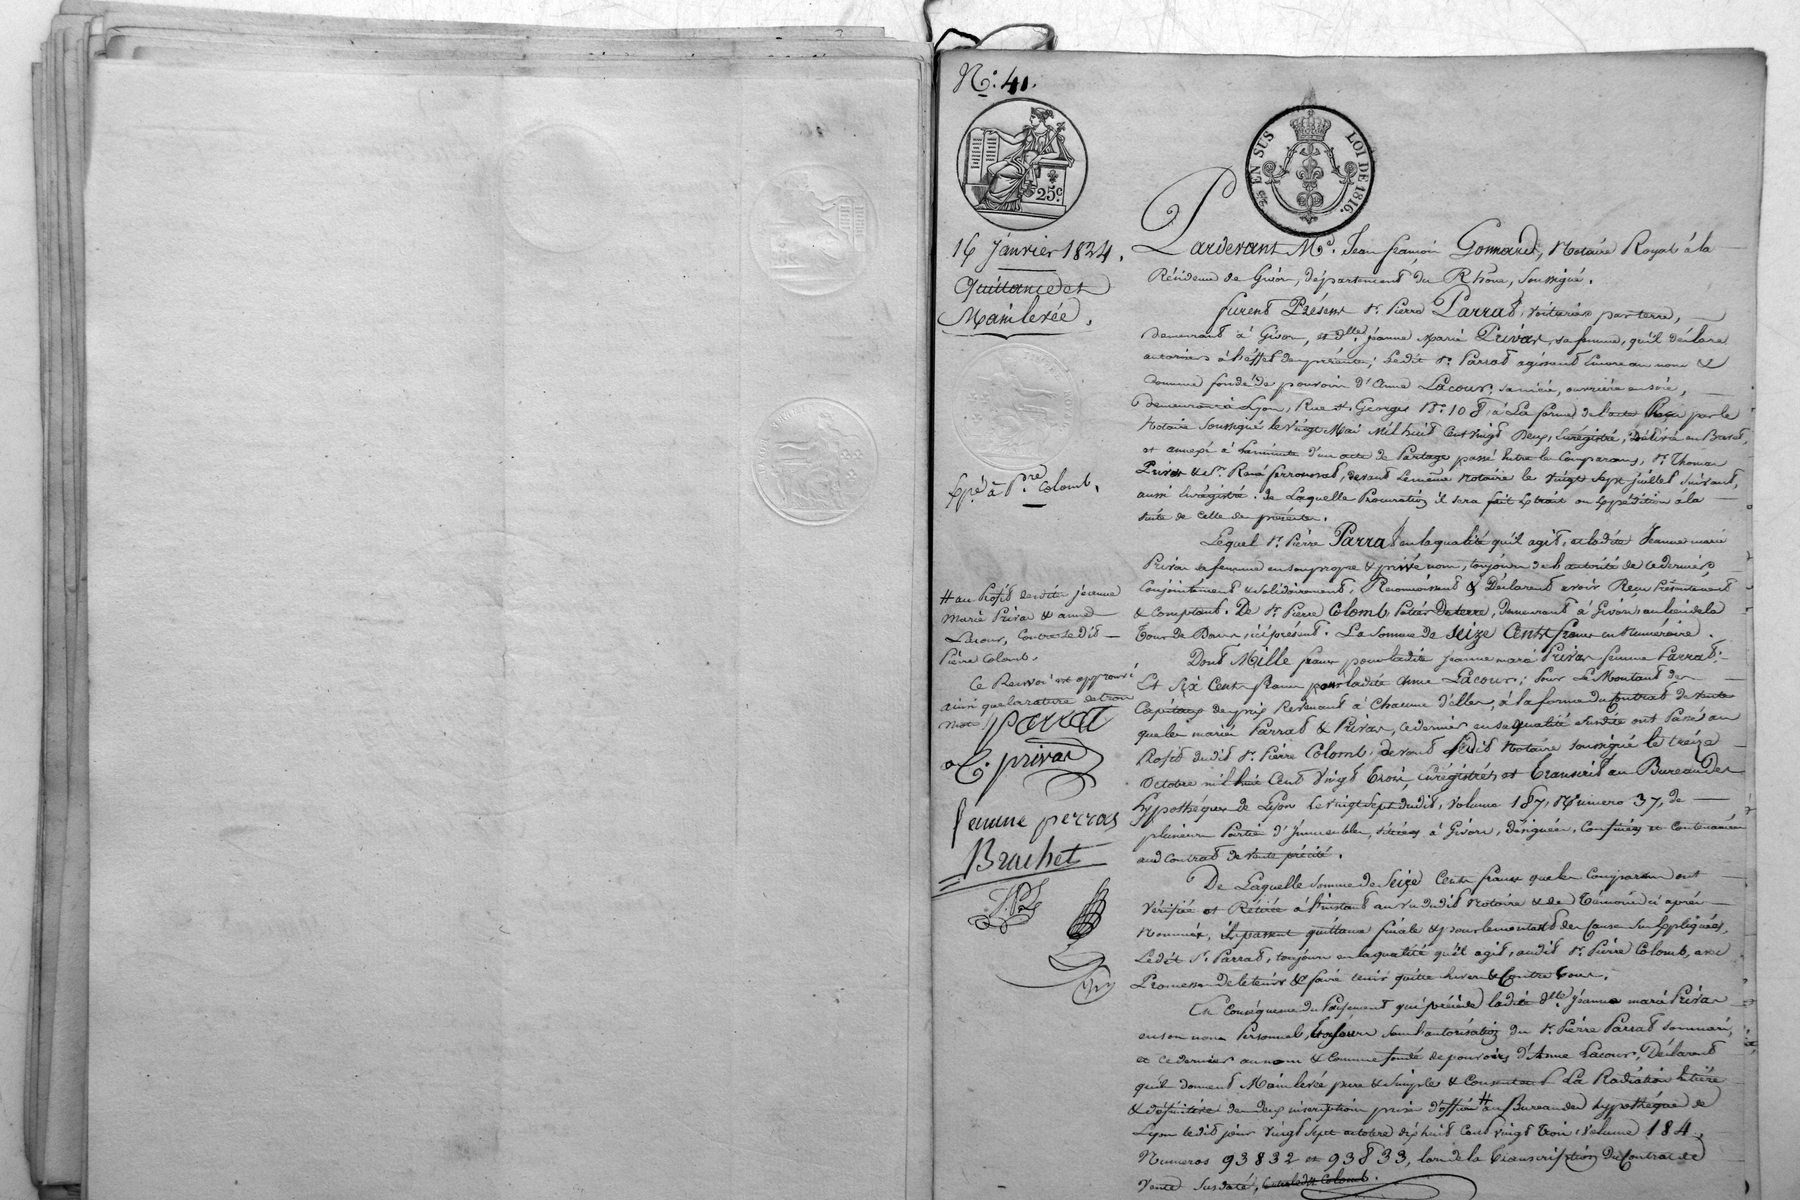 N.o 41.
25c.
25 EN SUS LOI DE 1816.
16 Janvier 1824.
Quittance et
Mainlevée.
Expé. à Pre. Colomb.
# au Profit desdites jeanne
Marie Privas & anne
Lacour, Contre ledit
Pierre Colomb.
Ce Renvoi est approuvé
ainsi que la rature de trois
mots
parrat
C. privas
femme perras
Brachet
Pardevant Me. Jean françois Gonnard, Notaire Royal à la
Résidence de Givors, département du Rhône, Soussigné.
furent Présens sr. Pierre Parrat, voiturier par terre,
demeurant à Givors, et dlle. Jeanne Marie Privas, sa femme, qu'il déclare
autoriser à l'effet des présentes; Ledit sr. Parrat agissant encore au nom &
Comme fondé de pouvoir d'Anne Lacour, sa nièce, ouvrière en soie,
demeurant à Lyon, Rue St. Georges No. 108, à La forme de l'acte Reçu par le
Notaire Soussigné le vingt Mai Mil huit Cent vingt Deux, Enregistré, Délivré en Brevet,
et annexé à la minute d'un acte de Partage passé Entre les Comparans, sr. Thomas
Privas & sr. René ferroussat, devant Le même Notaire le vingt Sept juillet suivant,
aussi Enregistré. de Laquelle Procuration il sera fait Extrait ou Expédition à la
suite de celle des présentes.
Lequel sr. Pierre Parrat en la qualité qu'il agit, et ladite Jeanne marie
Privas sa femme en son propre & privé nom, toujours de l'autorité de ce dernier,
Conjointement & solidairement, Reconnoissent & Déclarent avoir Reçu Présentement
& Comptant. De sr. Pierre Colomb Potier de terre, demeurant à Givors, au lieu de la
Tour de Bans, ici présent. La somme de Seize Cents francs en Numéraire.
Dont Mille francs pour ladite jeanne marie Privas femme Parrat;
Et Six Cents francs pour ladite Anne Lacour; pour Le Montant des
Capitaux de prix Revenant à Chacune d'elles, à la forme du Contrat de vente
que les mariés Parrat & Privas, ce dernier en sa qualité susdite ont Passé au
Profit dudit sr. Pierre Colomb, devant ledit Notaire soussigné le treize
Octobre mil huit Cent Vingt Trois, Enregistré, et Transcrit au Bureau des
hypothèques de Lyon le vingt Sept dudit, volume 187, Numéro 37, de
plusieurs Parties d'Immeubles, situées à Givors, désignées, Confinées et Contenues
aud Contrat de vente précité.
De Laquelle somme de Seize Cents francs que les Comparans ont
Vérifiée et Retirée à l'instant au vu dudit Notaire & des Témoins ci après
Nommés, ils passent quittance finale & pour le montant des Causes sus Expliquées,
Ledit sr. Parrat, toujours en la qualité qu'il agit, audit sr. Pierre Colomb, avec
Promesse de le tenir & faire tenir quitte Envers & Contre Tous.
En Conséquence du Payement qui précède ladite dlle. jeanne marie Privas
en son nom Personnel, toujours sous l'autorisation du sr. Pierre Parrat son mari,
et ce dernier au nom & Comme fondé de pouvoirs d'Anne Lacour, Déclarent
qu'ils donnent Mainlevée pure & simple & Consentent La Radiation Entière
& définitive des deux inscriptions prises d'office # au Bureau des hypothèques de
Lyon ledit jour vingt Sept octobre dix huit Cent vingt Trois, volume 184,
Numéros 93832 et 93833, lors de la Transcription du Contrat de
vente Susdaté, contre ledit Colomb.